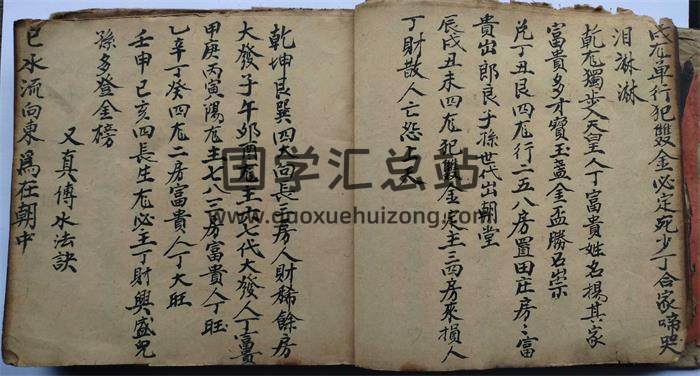 戊尨單行犯雙金必定死少丁合家啼哭
泪淋淋
乾尨獨步入天皇人丁富貴姓名揚其家
富貴多才寶玉盞金盃勝石崇
兌丁丑艮四尨行一五八房置田庄房〻富
貴出郎良子孫世代出朝堂
辰戌丑未四尨犯雙金定主三四房來損人
丁財散人亡怨上天
乾坤艮巽四大向長主房人財稀餘房
大發子午卯酉尨主六七代大發人丁富貴
甲庚丙寅陽尨主七八三房富貴人丁旺
乙辛丁癸四尨二房富貴人丁大旺
壬申己亥四長生尨必主丁財興盛兒
孫多登金榜
又真傳水法訣
巳水流向東爲在朝中
国学汇总站
www.guoxuehuizong.com